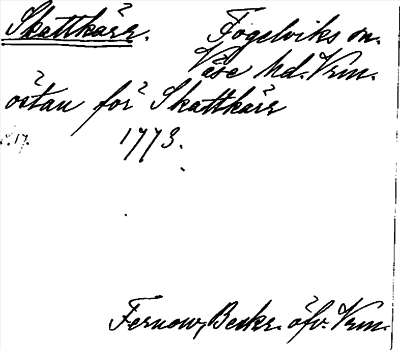 Skattkärr. Fogelviks sn.
Väse hd. Vrm.
östan för Skattkärr
1773.
Fernow, Beskr. öfv. Vrm.